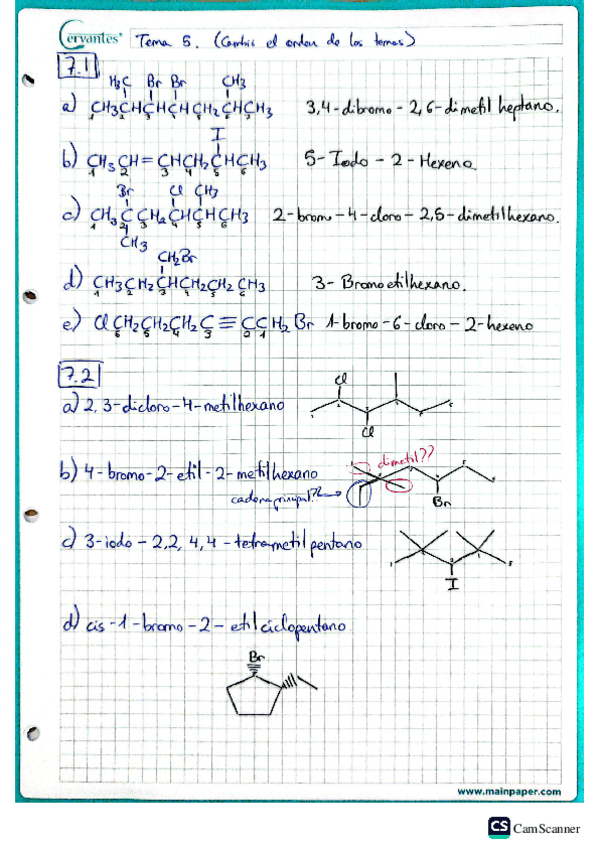 Cervantes® Tema 5. (Cambié el orden de los temas)
7.1
H₃C Br Br CH₃
a) CH₃CHCHCHCH₂CHCH₃ 3,4-dibromo-2,6-dimetil heptano.
1 2 3 4 5 6 7
I
b) CH₃CH=CHCH₂CHCH₃ 5-Iodo-2-Hexeno
1 2 3 4 5 6
Br Cl CH₃
c) CH₃CCH₂CHCHCH₃ 2-bromo-4-cloro-2,5-dimetilhexano.
1 2 3 4 5 6
CH₃
CH₂Br
d) CH₃CH₂CHCH₂CH₂CH₃ 3-Bromoetilhexano.
1 2 3 4 5 6
e) ClCH₂CH₂CH₂C≡CCH₂Br 1-bromo-6-cloro-2-hexeno
6 5 4 3 2 1
7.2
Cl
a) 2,3-dicloro-4-metilhexano
Cl
dimetil??
b) 4-bromo-2-etil-2-metilhexano
cadena principal?? Br
c) 3-iodo-2,2,4,4-tetrametilpentano
I
d) cis-1-bromo-2-etilciclopentano
Br
www.mainpaper.com
CS CamScanner